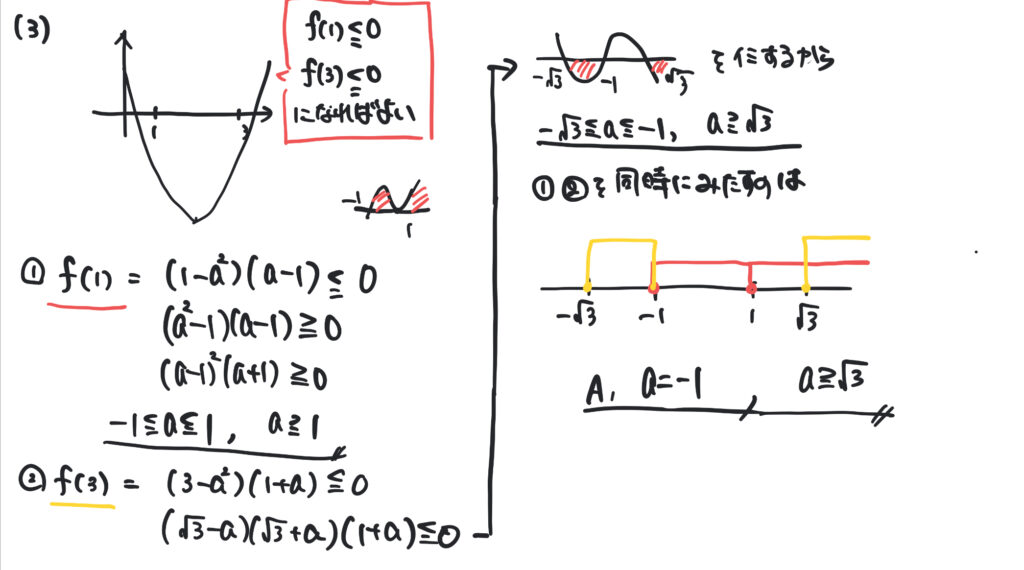 (3)
f(1)≦0
f(3)≦0
になればよい
1 3
-1 1
① f(1) = (1-a²)(a-1)≦0
(a²-1)(a-1)≧0
(a-1)²(a+1)≧0
-1≦a≦1, a≧1
② f(3) = (3-a²)(1+a)≦0
(√3-a)(√3+a)(1+a)≦0
-√3 -1 √3
-√3≦a≦-1, a≧√3
①②を同時にみたすのは
-√3 -1 1 √3
A, a=-1, a≧√3